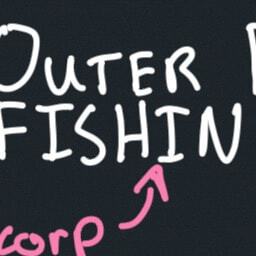 OUTER
FISHIN
corp